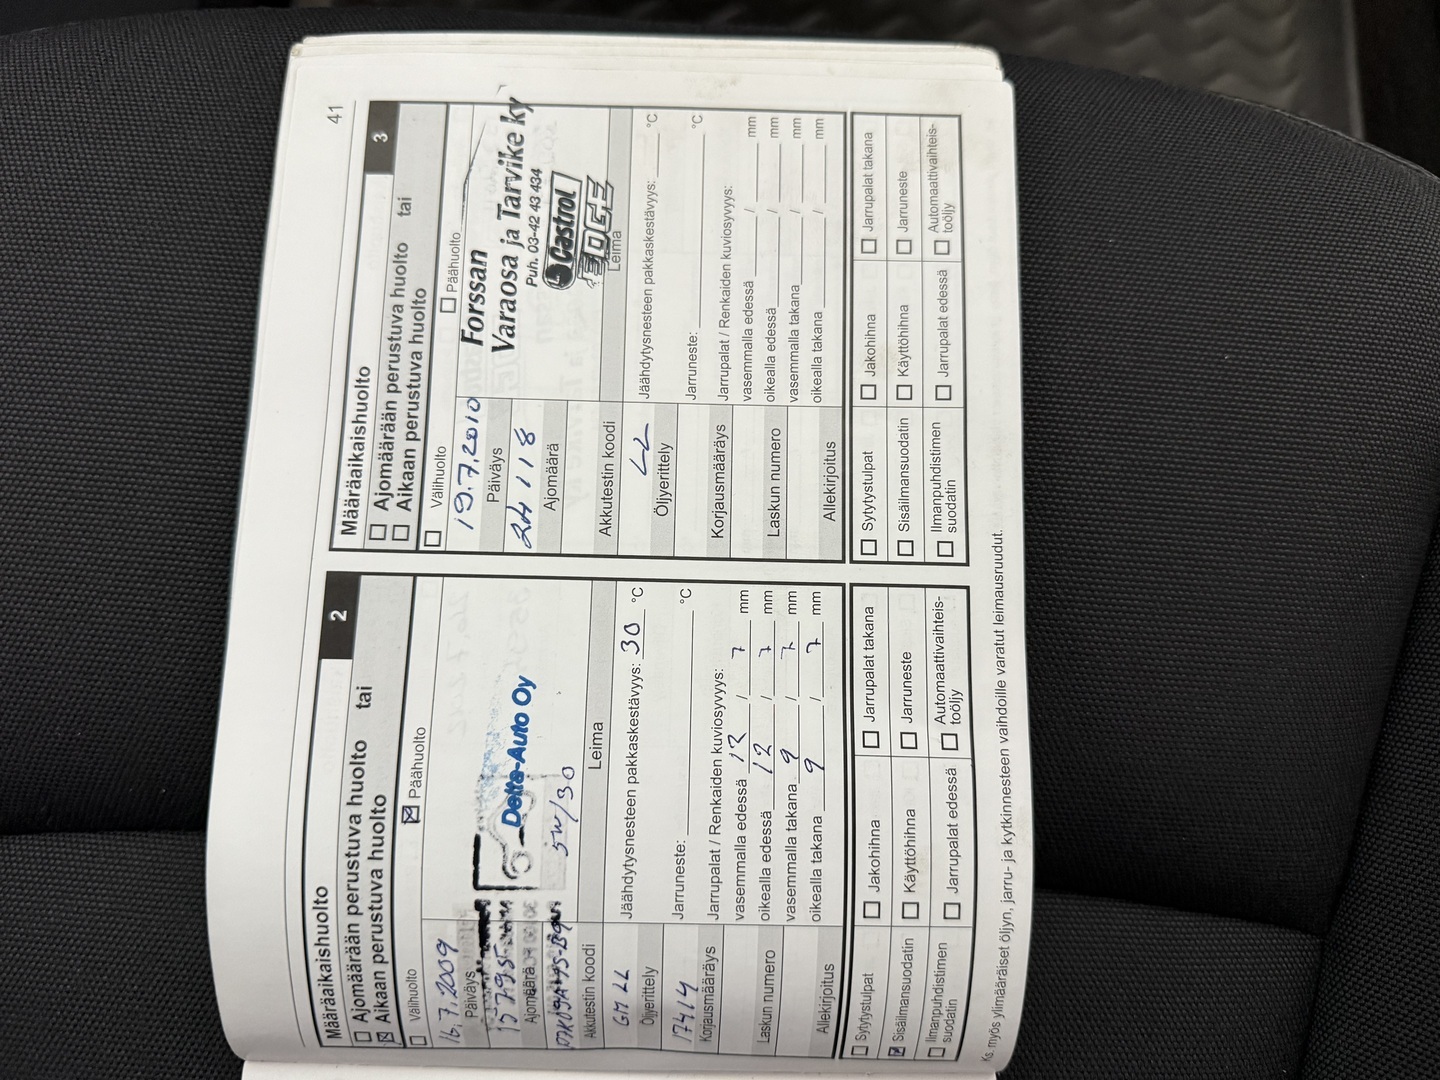 41
Määräaikaishuolto
2
☐ Ajomäärään perustuva huolto tai
☒ Aikaan perustuva huolto
☐ Välihuolto ☒ Päähuolto
16.7.2009
Päiväys
Ajomäärä
Delta-Auto Oy
5W/30
Akkutestin koodi
Leima
GM LL
Öljyerittely
Jäähdytysnesteen pakkaskestävyys: 30 °C
17414
Korjausmääräys
Jarruneste: °C
Jarrupalat / Renkaiden kuviosyvyys:
vasemmalla edessä 12 / 7 mm
Laskun numero
oikealla edessä 12 / 7 mm
vasemmalla takana 9 / 7 mm
Allekirjoitus
oikealla takana 9 / 7 mm
☐ Sytytystulpat ☐ Jakohihna ☐ Jarrupalat takana
☒ Sisäilmansuodatin ☐ Käyttöhihna ☐ Jarruneste
☐ Ilmanpuhdistimen suodatin ☐ Jarrupalat edessä ☐ Automaattivaihteis-
toöljy
Määräaikaishuolto
3
☐ Ajomäärään perustuva huolto tai
☐ Aikaan perustuva huolto
☐ Välihuolto ☐ Päähuolto
19.7.2010
Päiväys
24118
Ajomäärä
Forssan
Varaosa ja Tarvike ky
Puh. 03-42 43 434
Castrol
EDGE
Akkutestin koodi
Leima
LL
Öljyerittely
Jäähdytysnesteen pakkaskestävyys: °C
Korjausmääräys
Jarruneste: °C
Jarrupalat / Renkaiden kuviosyvyys:
vasemmalla edessä / mm
Laskun numero
oikealla edessä / mm
vasemmalla takana / mm
Allekirjoitus
oikealla takana / mm
☐ Sytytystulpat ☐ Jakohihna ☐ Jarrupalat takana
☐ Sisäilmansuodatin ☐ Käyttöhihna ☐ Jarruneste
☐ Ilmanpuhdistimen suodatin ☐ Jarrupalat edessä ☐ Automaattivaihteis-
toöljy
Ks. myös ylimääräiset öljyn, jarru- ja kytkinnesteen vaihdoille varatut leimausruudut.